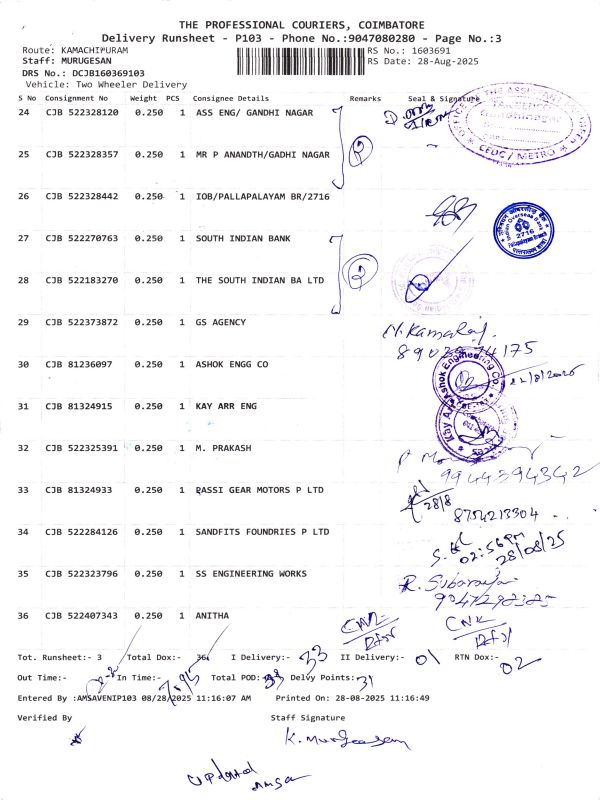 THE PROFESSIONAL COURIERS, COIMBATORE
Delivery Runsheet - P103 - Phone No.:9047080280 - Page No.:3
Route: KAMACHIPURAM RS No.: 1603691
Staff: MURUGESAN RS Date: 28-Aug-2025
DRS No.: DCJB160369103
Vehicle: Two Wheeler Delivery
S No Consignment No Weight PCS Consignee Details Remarks Seal & Signature
24 CJB 522328120 0.250 1 ASS ENG/ GANDHI NAGAR
25 CJB 522328357 0.250 1 MR P ANANDTH/GADHI NAGAR
CEDC / METRO
26 CJB 522328442 0.250 1 IOB/PALLAPALAYAM BR/2716
Indian Overseas Bank
2716
27 CJB 522270763 0.250 1 SOUTH INDIAN BANK
28 CJB 522183270 0.250 1 THE SOUTH INDIAN BA LTD
29 CJB 522373872 0.250 1 GS AGENCY
N. Kamalaj
30 CJB 81236097 0.250 1 ASHOK ENGG CO
Ashok Engineering Co.
31 CJB 81324915 0.250 1 KAY ARR ENG
32 CJB 522325391 0.250 1 M. PRAKASH
9944394342
33 CJB 81324933 0.250 1 RASSI GEAR MOTORS P LTD
28/8
8754213304
34 CJB 522284126 0.250 1 SANDFITS FOUNDRIES P LTD
02:56pm
28/08/25
35 CJB 522323796 0.250 1 SS ENGINEERING WORKS
36 CJB 522407343 0.250 1 ANITHA
Tot. Runsheet:- 3 Total Dox:- 36 I Delivery:- 33 II Delivery:- 01 RTN Dox:- 02
Out Time:- In Time:- Total POD:- 33 Delvy Points:- 31
Entered By :AMSAVENIP103 08/28/2025 11:16:07 AM Printed On: 28-08-2025 11:16:49
Verified By Staff Signature
K. Murgeasan
updated